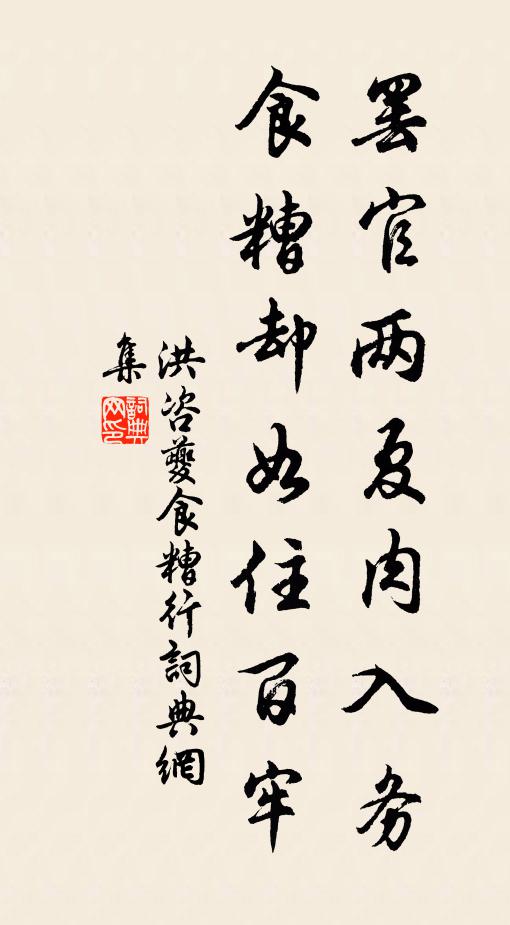 罢官两夏肉入务
食糟却如住百牢
洪咨夔食糟行詞典網
集
詞典网印